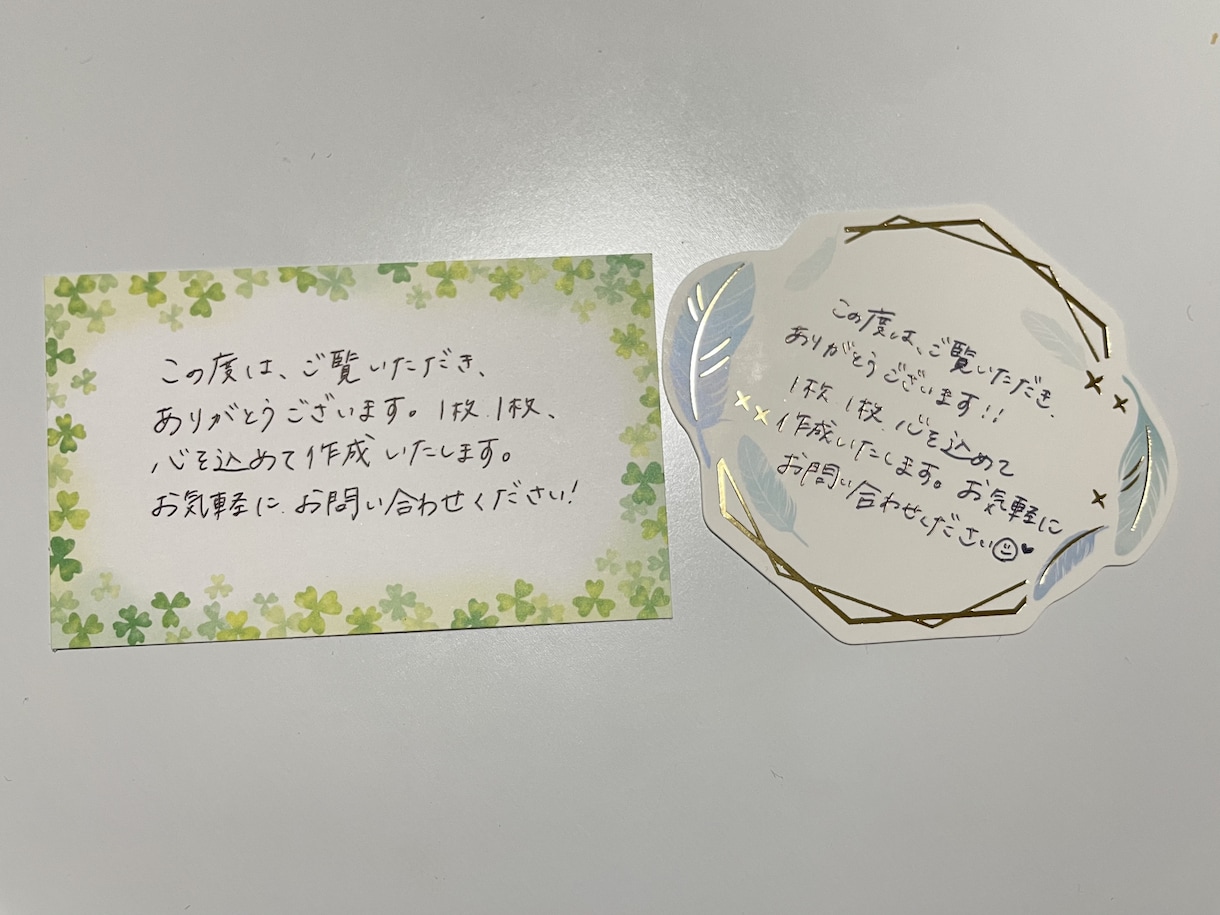 この度は、ご覧いただき、
ありがとうございます。1枚、1枚、
心を込めて作成いたします。
お気軽に、お問い合わせください!
この度は、ご覧いただき、
ありがとうございます!!
1枚、1枚、心を込めて
作成いたします。お気軽に
お問い合わせください☺♥